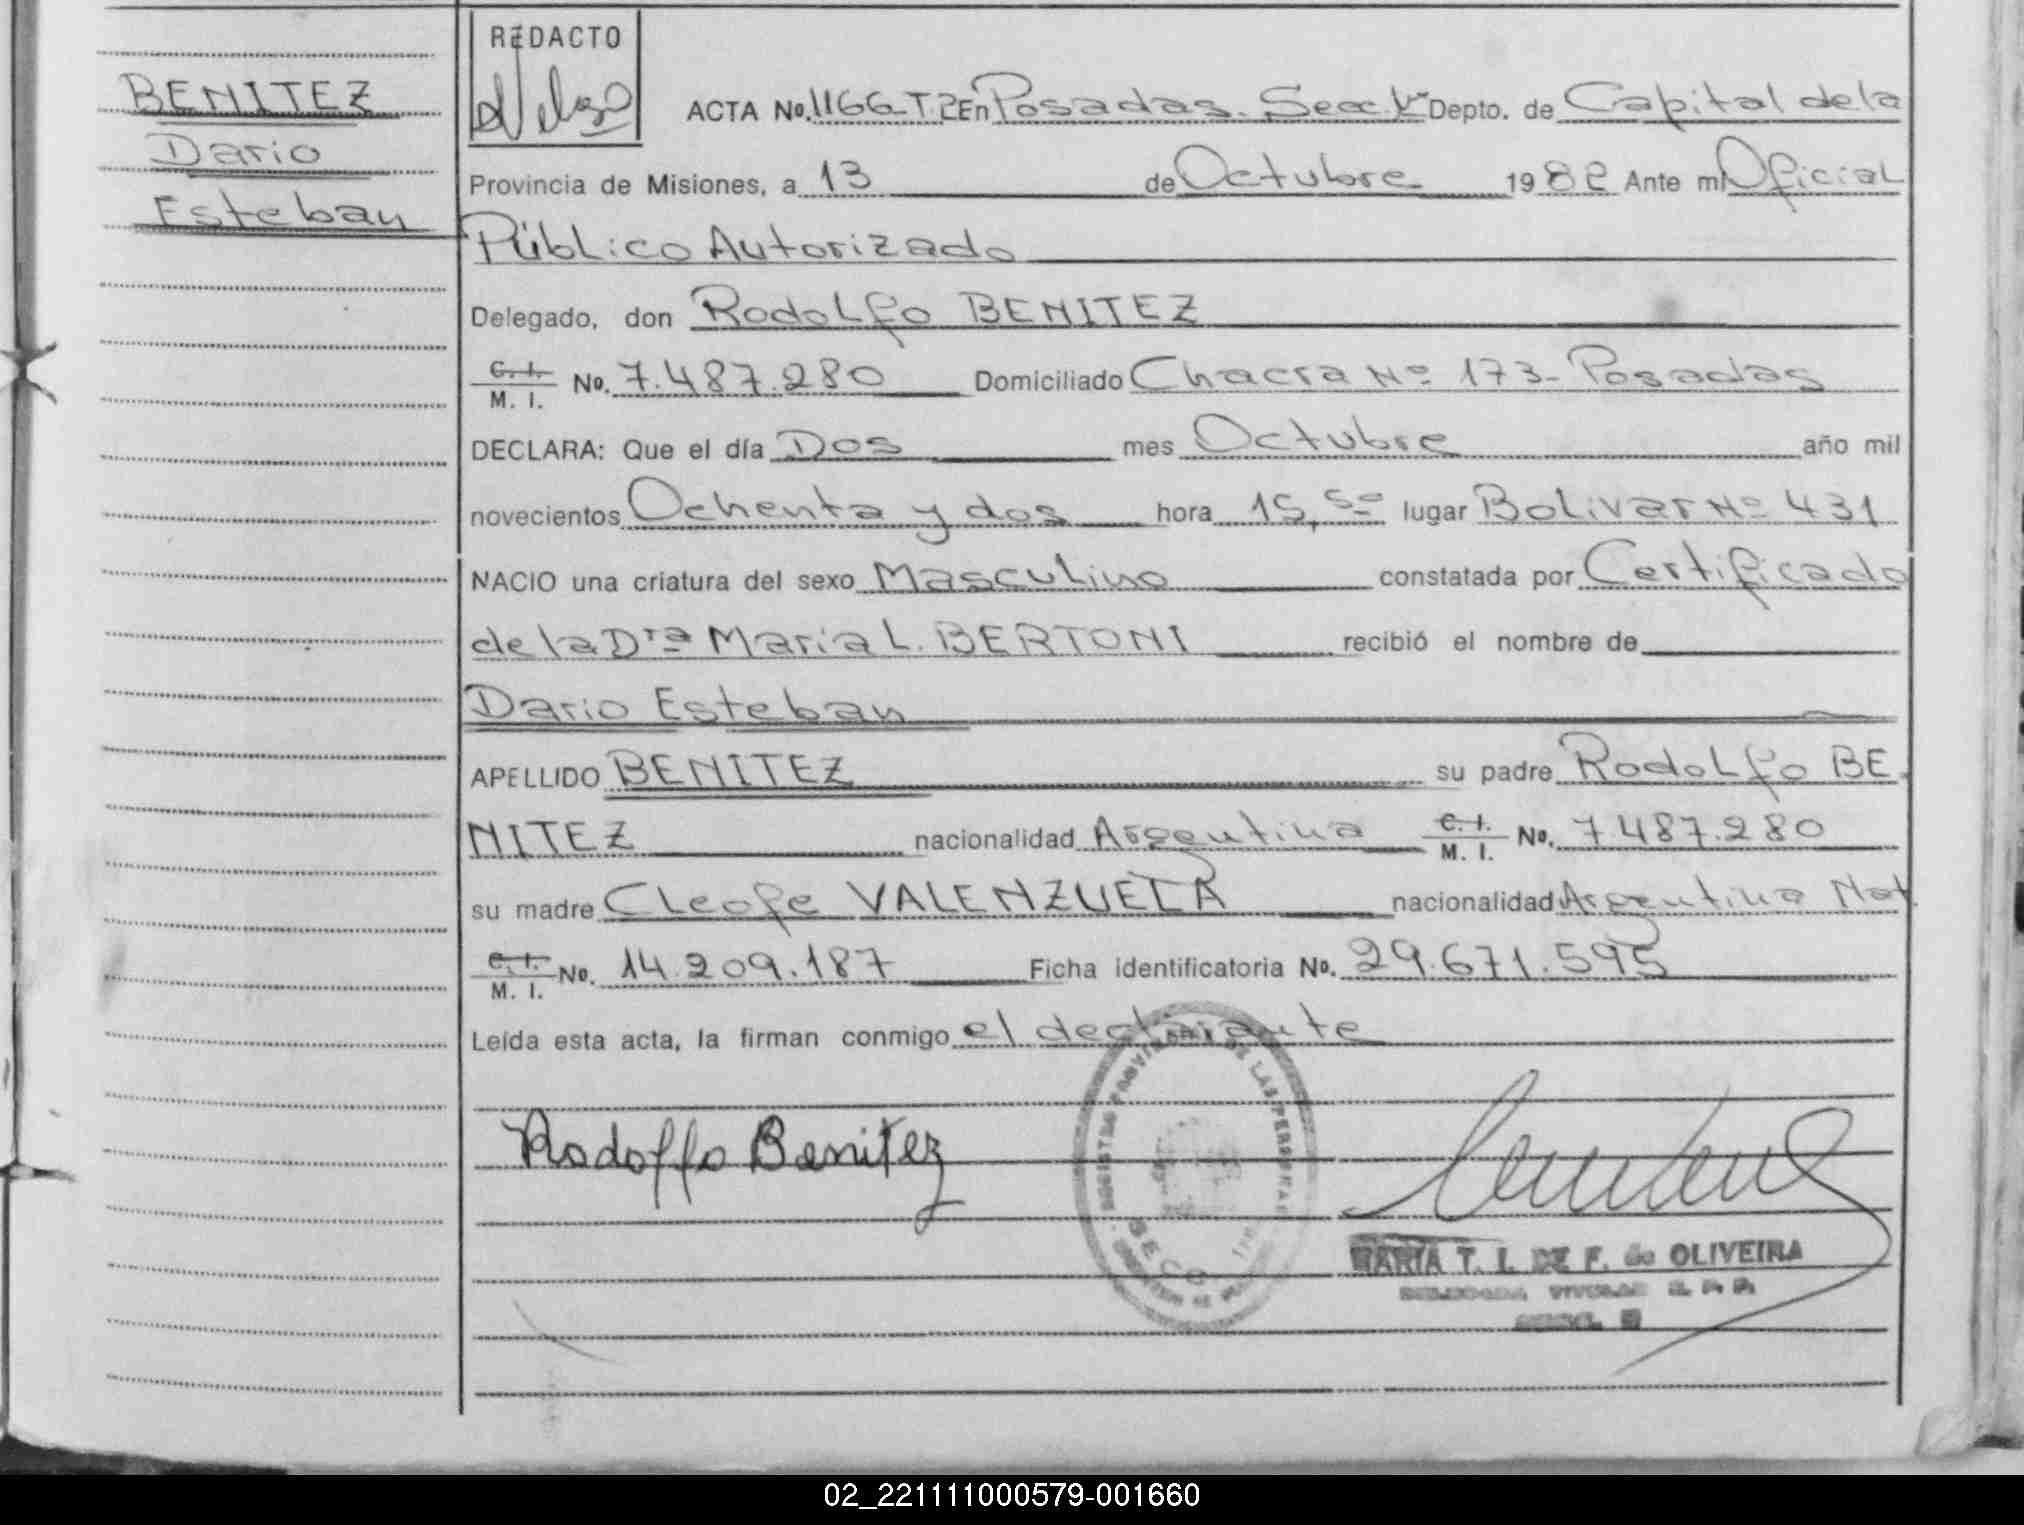 BENITEZ
Dario
Esteban
REDACTO
ACTA No. 1166-T.2 En Posadas. Secc. Depto. de Capital de la
Provincia de Misiones, a 13 de Octubre 1982 Ante mi Oficial
Público Autorizado
Delegado, don Rodolfo BENITEZ
C. I.
M. I. No. 7.487.280 Domiciliado Chacra Nº 173- Posadas
DECLARA: Que el día Dos mes Octubre año mil
novecientos Ochenta y dos hora 15,50 lugar Bolivar Nº 431
NACIO una criatura del sexo Masculino constatada por Certificado
de la Dra Maria L. BERTONI recibió el nombre de
Dario Esteban
APELLIDO BENITEZ su padre Rodolfo BE
NITEZ nacionalidad Argentina C. I.
M. I. No. 7.487.280
su madre Cleofe VALENZUELA nacionalidad Argentina Nat.
C. I.
M. I. No. 14.209.187 Ficha identificatoria No. 29.671.595
Leída esta acta, la firman conmigo el declarante
Rodolfo Benitez
REGISTRO PROVINCIAL DE LAS PERSONAS
SECC
MARIA T. I. DE F. de OLIVEIRA
DELEGADA TITULAR R. P. P.
02_221111000579-001660